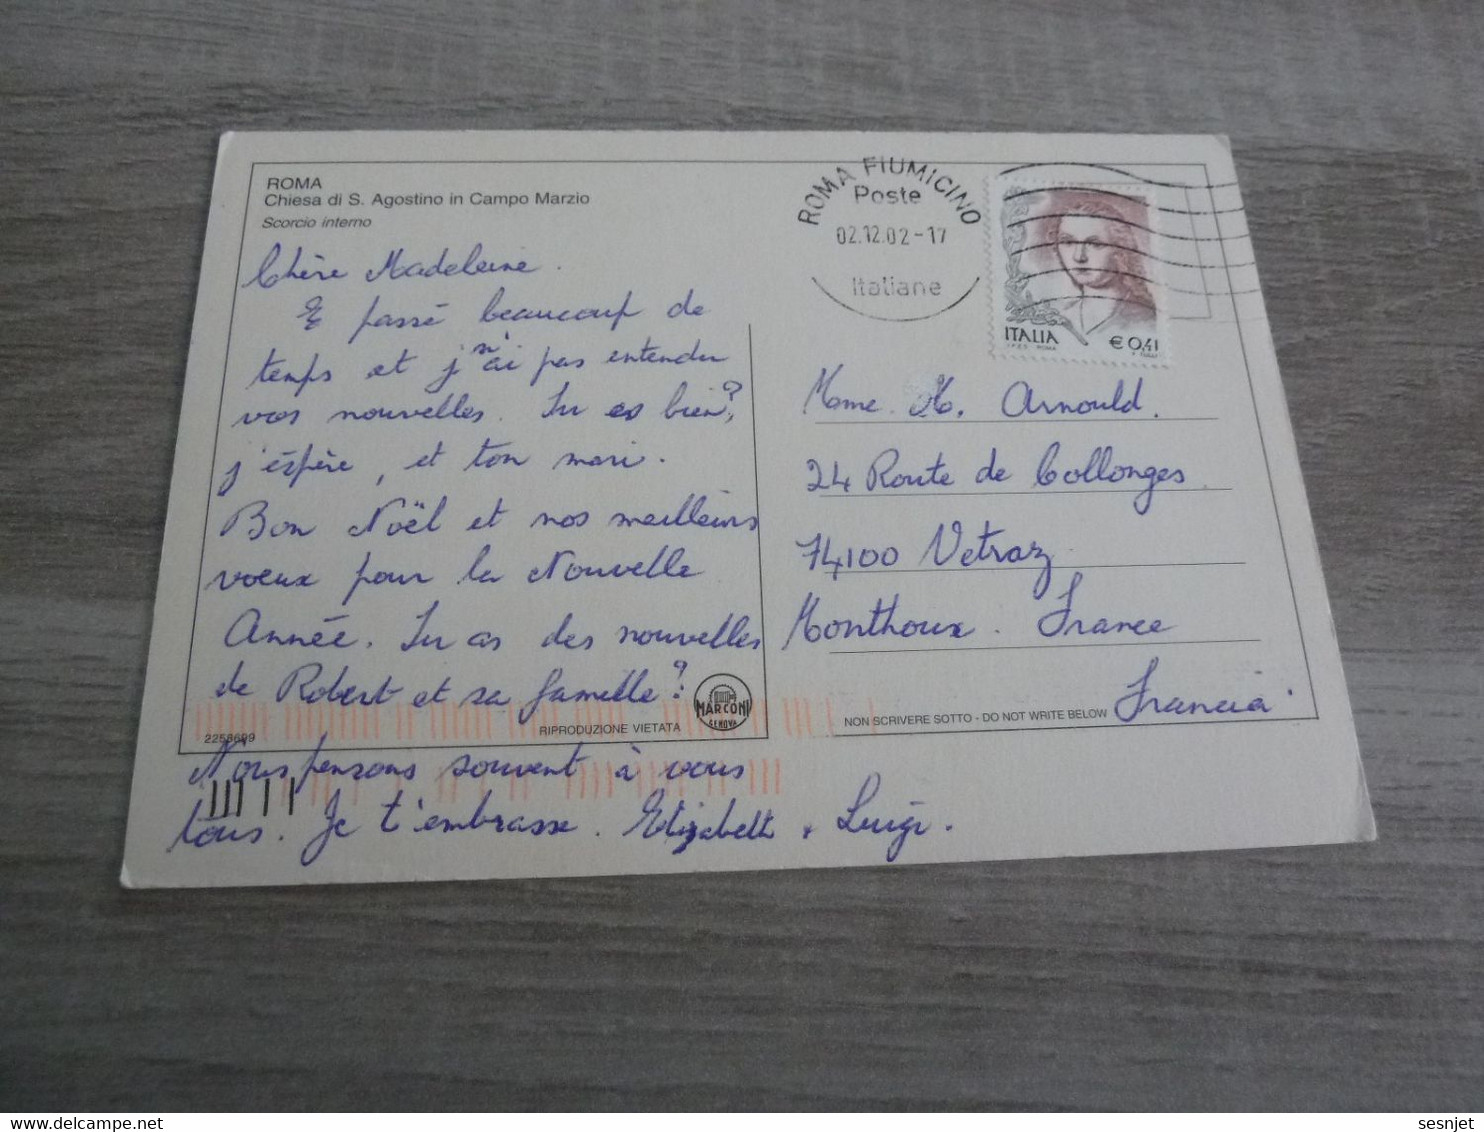 ROMA
Chiesa di S. Agostino in Campo Marzio
Scorcio interno
Chère Madeleine.
passé beaucoup de
temps et j'n'ai pas entendu
vos nouvelles. Tu es bien?,
j'éspère, et ton mari.
Bon Noël et nos meilleurs
voeux pour la Nouvelle
Année. Tu as des nouvelles
de Robert et sa famille?
Nous pensons souvent à vous
tous. Je t'embrasse. Elizabeth + Luigi.
2258699
RIPRODUZIONE VIETATA
MARCONI
GENOVA
ROMA FIUMICINO
Poste
02.12.02-17
Italiane
ITALIA
€ 0,41
I.P.Z.S. ROMA
Mme. M. Arnould.
24 Route de Collonges
74100 Vetraz
Monthoux. France
Francia
NON SCRIVERE SOTTO - DO NOT WRITE BELOW
sesnjet
delcampe.net